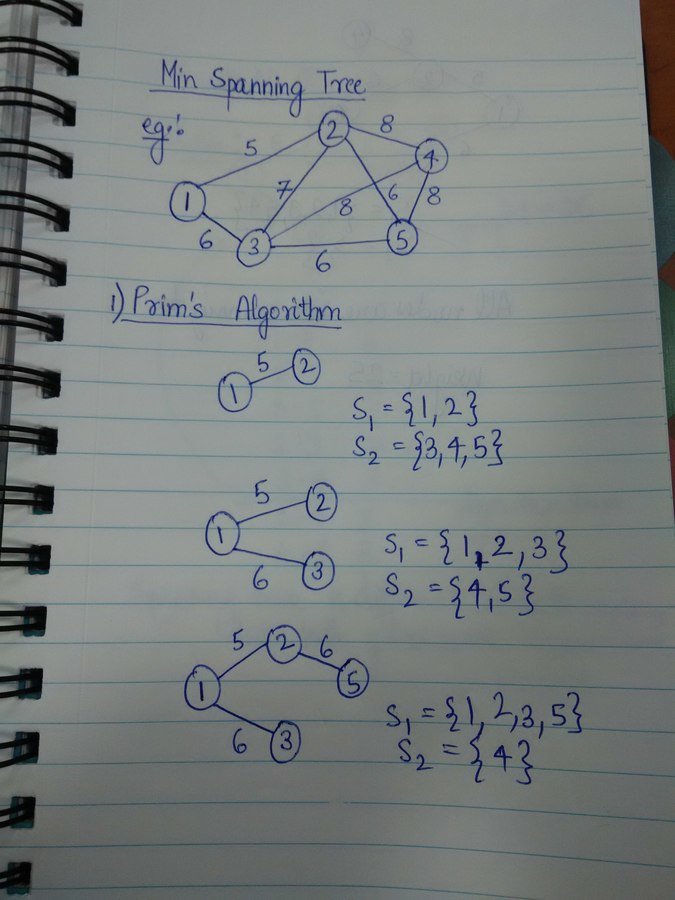 Min Spanning Tree
eg:
5
2
8
4
1
7
8
6
8
6
3
6
5
1) Prim's Algorithm
1 5 2
S₁ = {1, 2}
S₂ = {3, 4, 5}
5 2
1
6 3
S₁ = {1, 2, 3}
S₂ = {4, 5}
5 2 6
1 5
6 3
S₁ = {1, 2, 3, 5}
S₂ = {4}